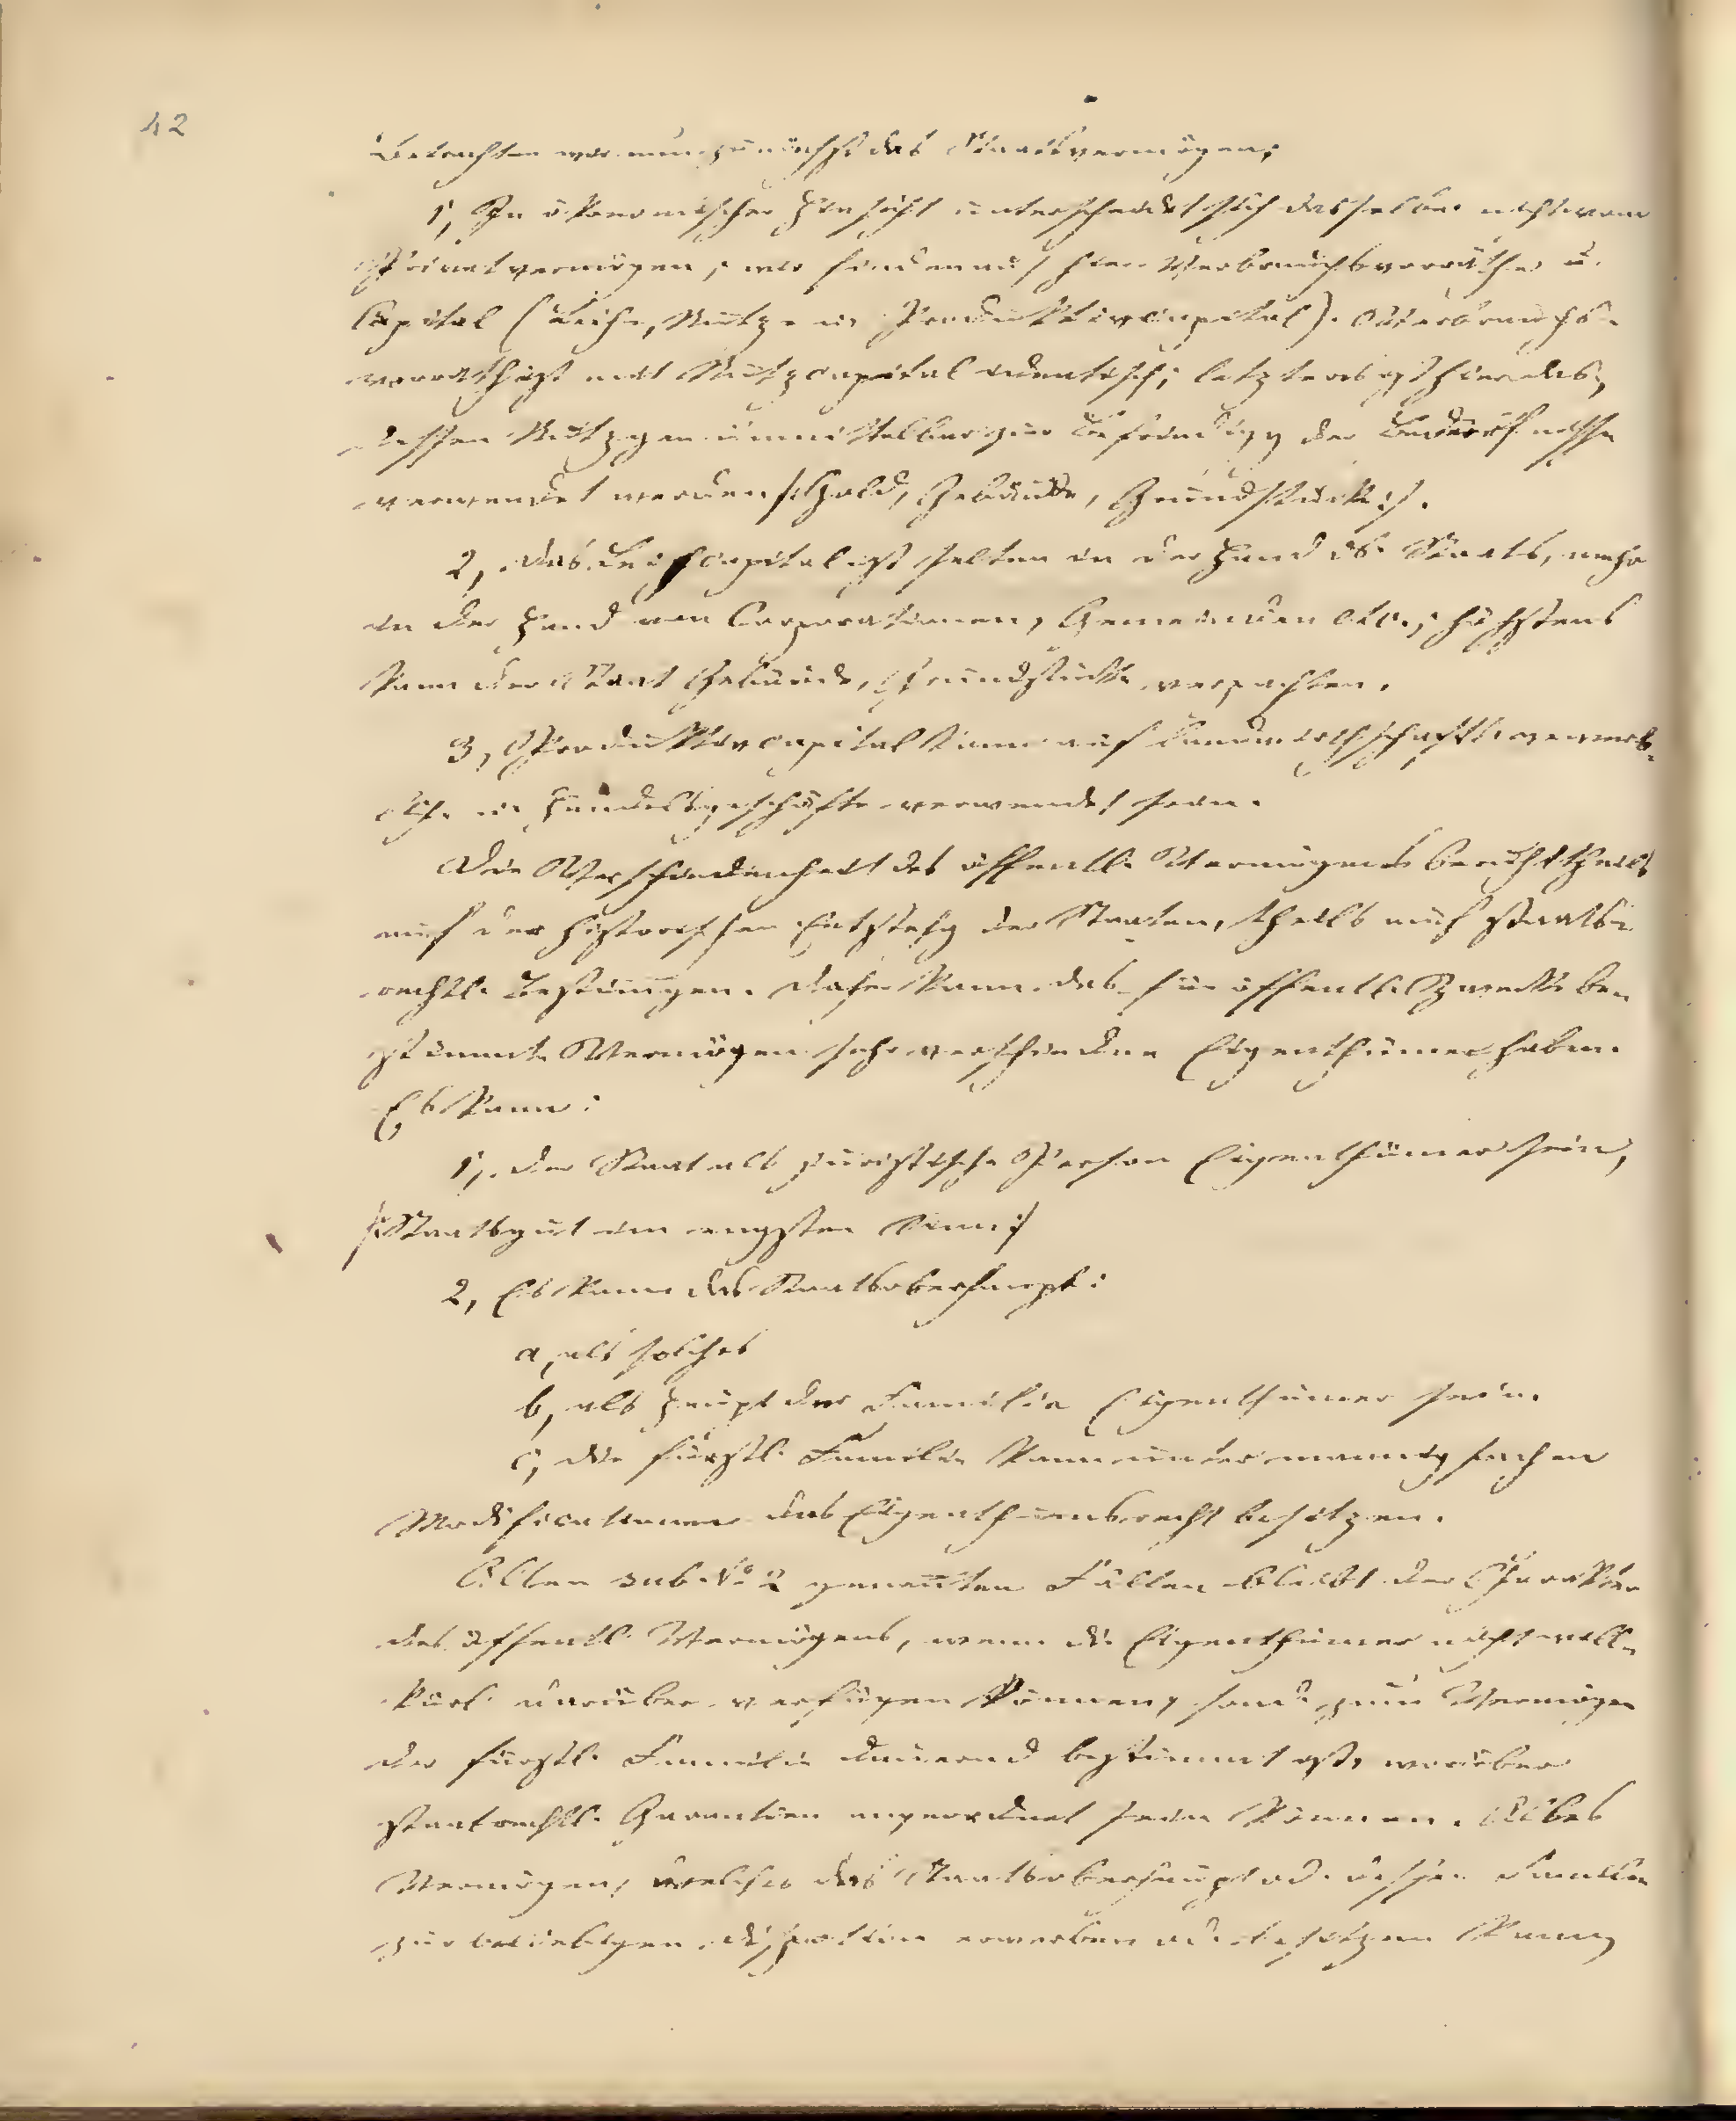 42
Betrachten wir nun zunächst das Staatsvermögen;
1, In ökonomischer Hinsicht unterscheidet sich dasselbe nicht vom
Privatvermögen; wir finden auch hier Verbrauchsvorräthe u.
Capital (Leih-, Nutz- u. Produktivcapital). Verbrauchs-
vorrath ist mit Nutzcapital identisch; letzteres ist hier das,
dessen Nutzgen unmittelbar zur Befriedigg der Bedürfnisse
verwendet werden /: Gold, Gebäude, Grundstücke :/.
2, das Leihcapital ist selten in der Hand des Staats, mehr
in der Hand von Corporationen, Gemeinden etc.; höchstens
kann der Staat Gebäude, Grundstücke verpachten.
3, Produktivcapital kann auf landwirthschaftl. gewerb-
liche u. Handelsgeschäfte verwendet sein.
Die Verschiedenheit des öffentl. Vermögens beruht theils
auf der historischen Entstehg der Staaten, theils auf staats-
rechtl. Bestimungen. Daher kann das für öffentl. Zwecke be-
stimmte Vermögen sehr verschiedene Eigenthümer haben.
Es kann:
1, der Staat als juristische Person Eigenthümer sein,
/: Staatsgut im engsten Sinn :/
2, Es kann das Staatsoberhaupt:
a, als solches
b, als Haupt der Familie Eigenthümer sein.
c, die fürstl. Familie kann unter mannigfachen
Modificationen das Eigenthumsrecht besitzen.
Allen sub. No 2 genanten Fällen bleibt der Charakter
des öffentl. Vermögens, wenn die Eigenthümer nicht will-
kürl. darüber verfügen können, sond. zum Vermögen
der fürstl. Familie dauernd bestimmt ist, worüber
staatrechtl. Garantien angeordnet sein können. Alles
Vermögen, welches das Staatsoberhaupt od. dessen Familie
zur beliebigen Disposition erwerben od. besitzen kann,